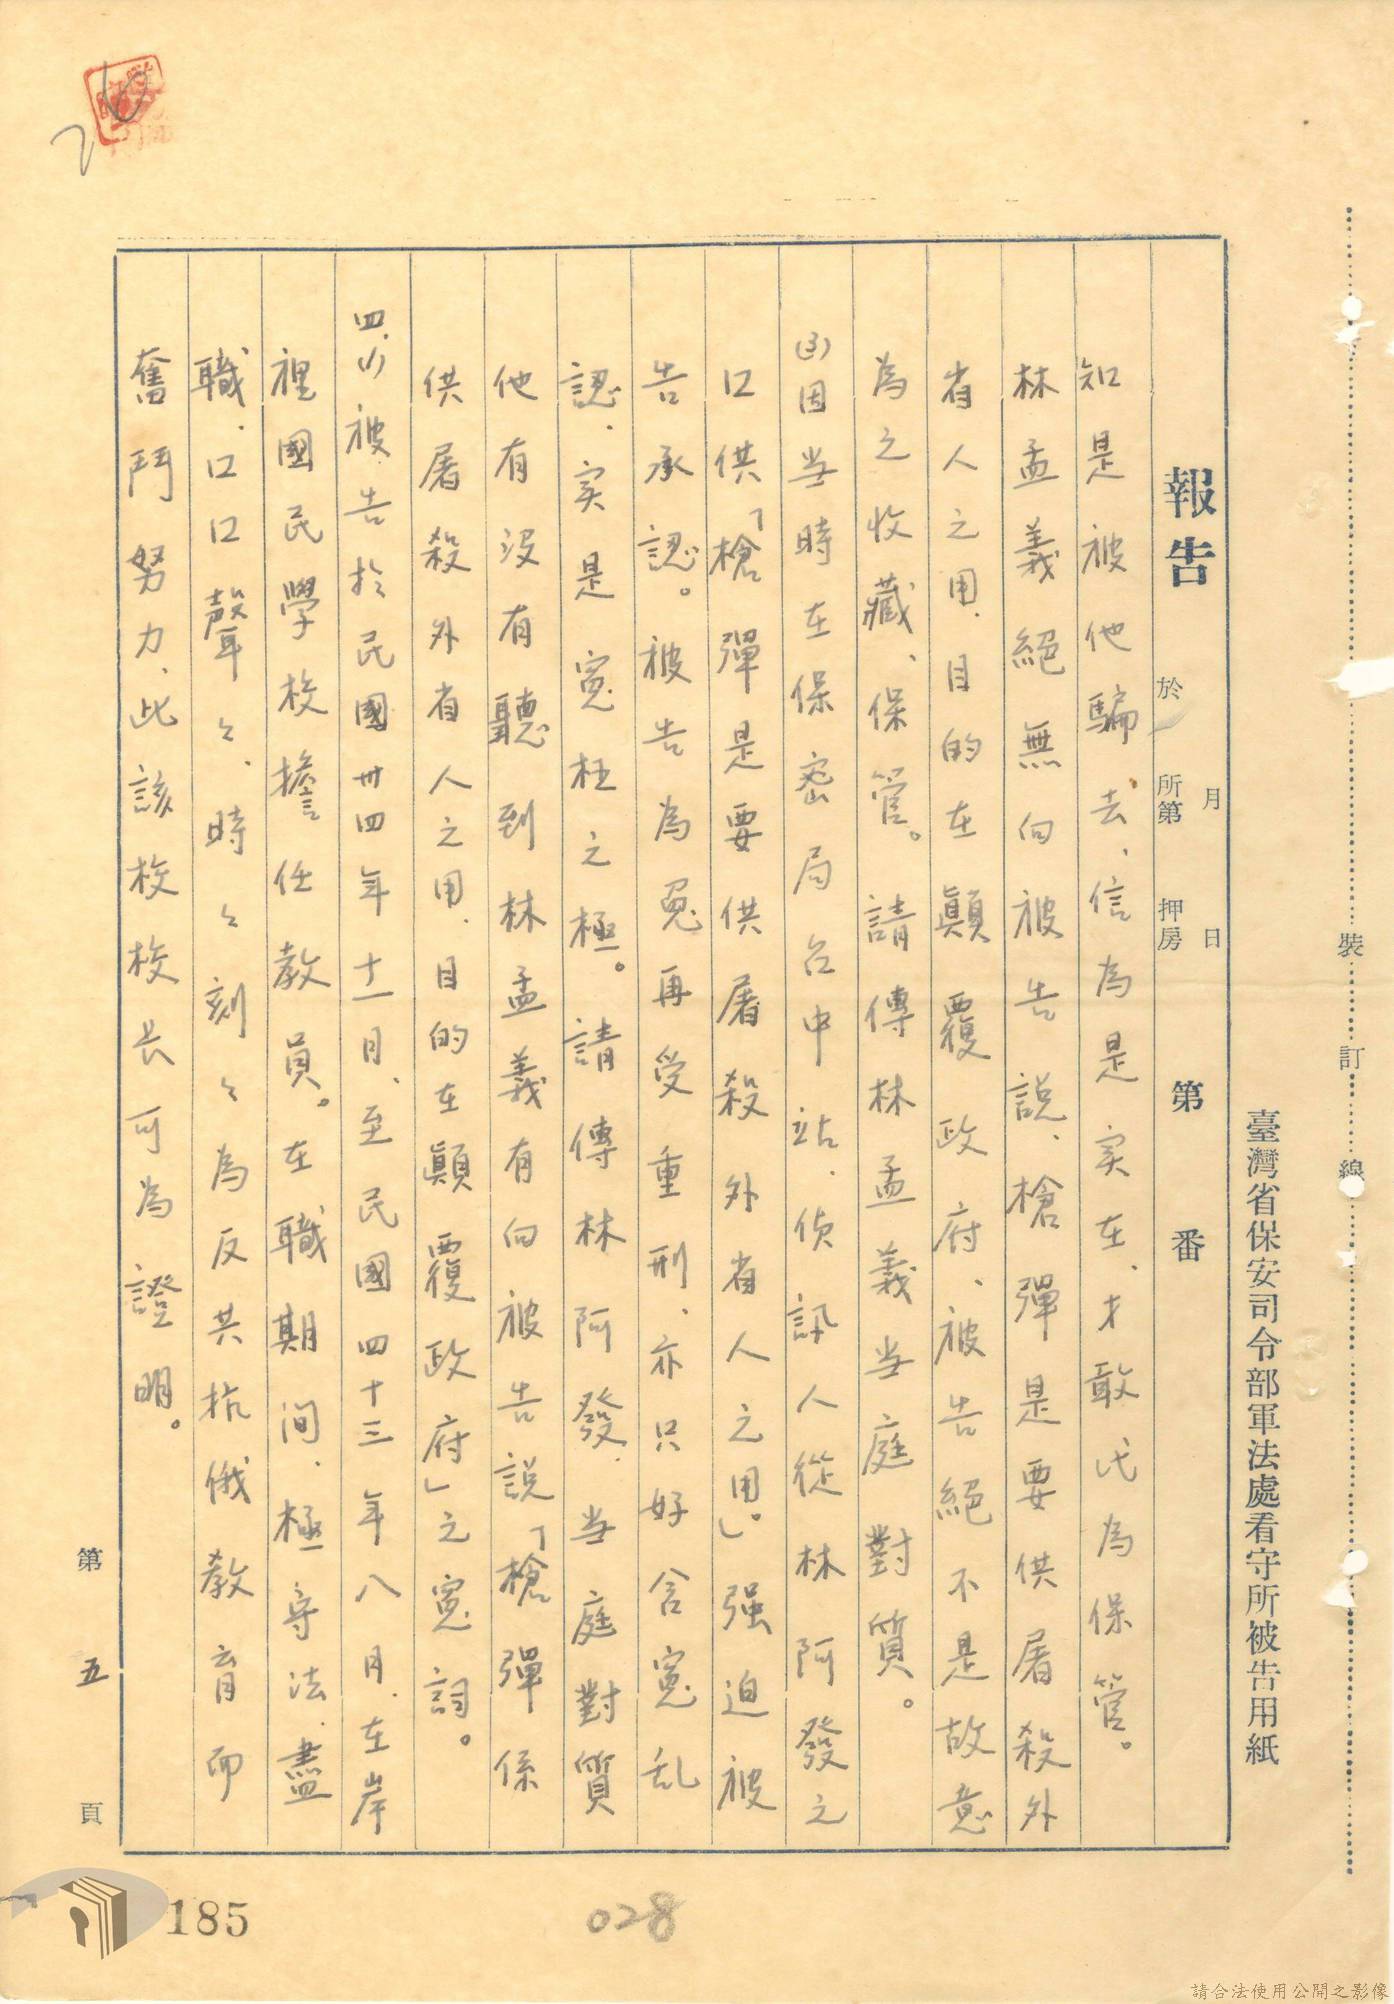 臺灣省保安司令部軍法處看守所被告用紙
裝訂線
報告
於
所第
押房
月
日
第
番
知是被他騙去、信為是实在、才敢代為保管。
林孟義絕無向被告説、槍彈是要供屠殺外
省人之用、目的在顛覆政府、被告絕不是故意
為之收藏、保管。請傳林孟義当庭對質。
(3)因当時在保密局台中站、偵訊人從林阿發之
口供「槍彈是要供屠殺外省人之用。」强迫被
告承認。被告為免再受重刑、亦只好含寃乱
認、实是寃枉之極。請傳林阿發、当庭對質
他有没有聽到林孟義有向被告説「槍彈係
供屠殺外省人之用、目的在顛覆政府」之寃詞。
四、(1)被告於民國卅四年十一月、至民國四十三年八月、在岸
裡國民學校擔任教員。在職期间、極守法、盡
職、口口聲々、時々刻々為反共抗俄教育而
奮鬥努力、此該校校長可為證明。
第
五
頁
185
028
請合法使用公開之影像